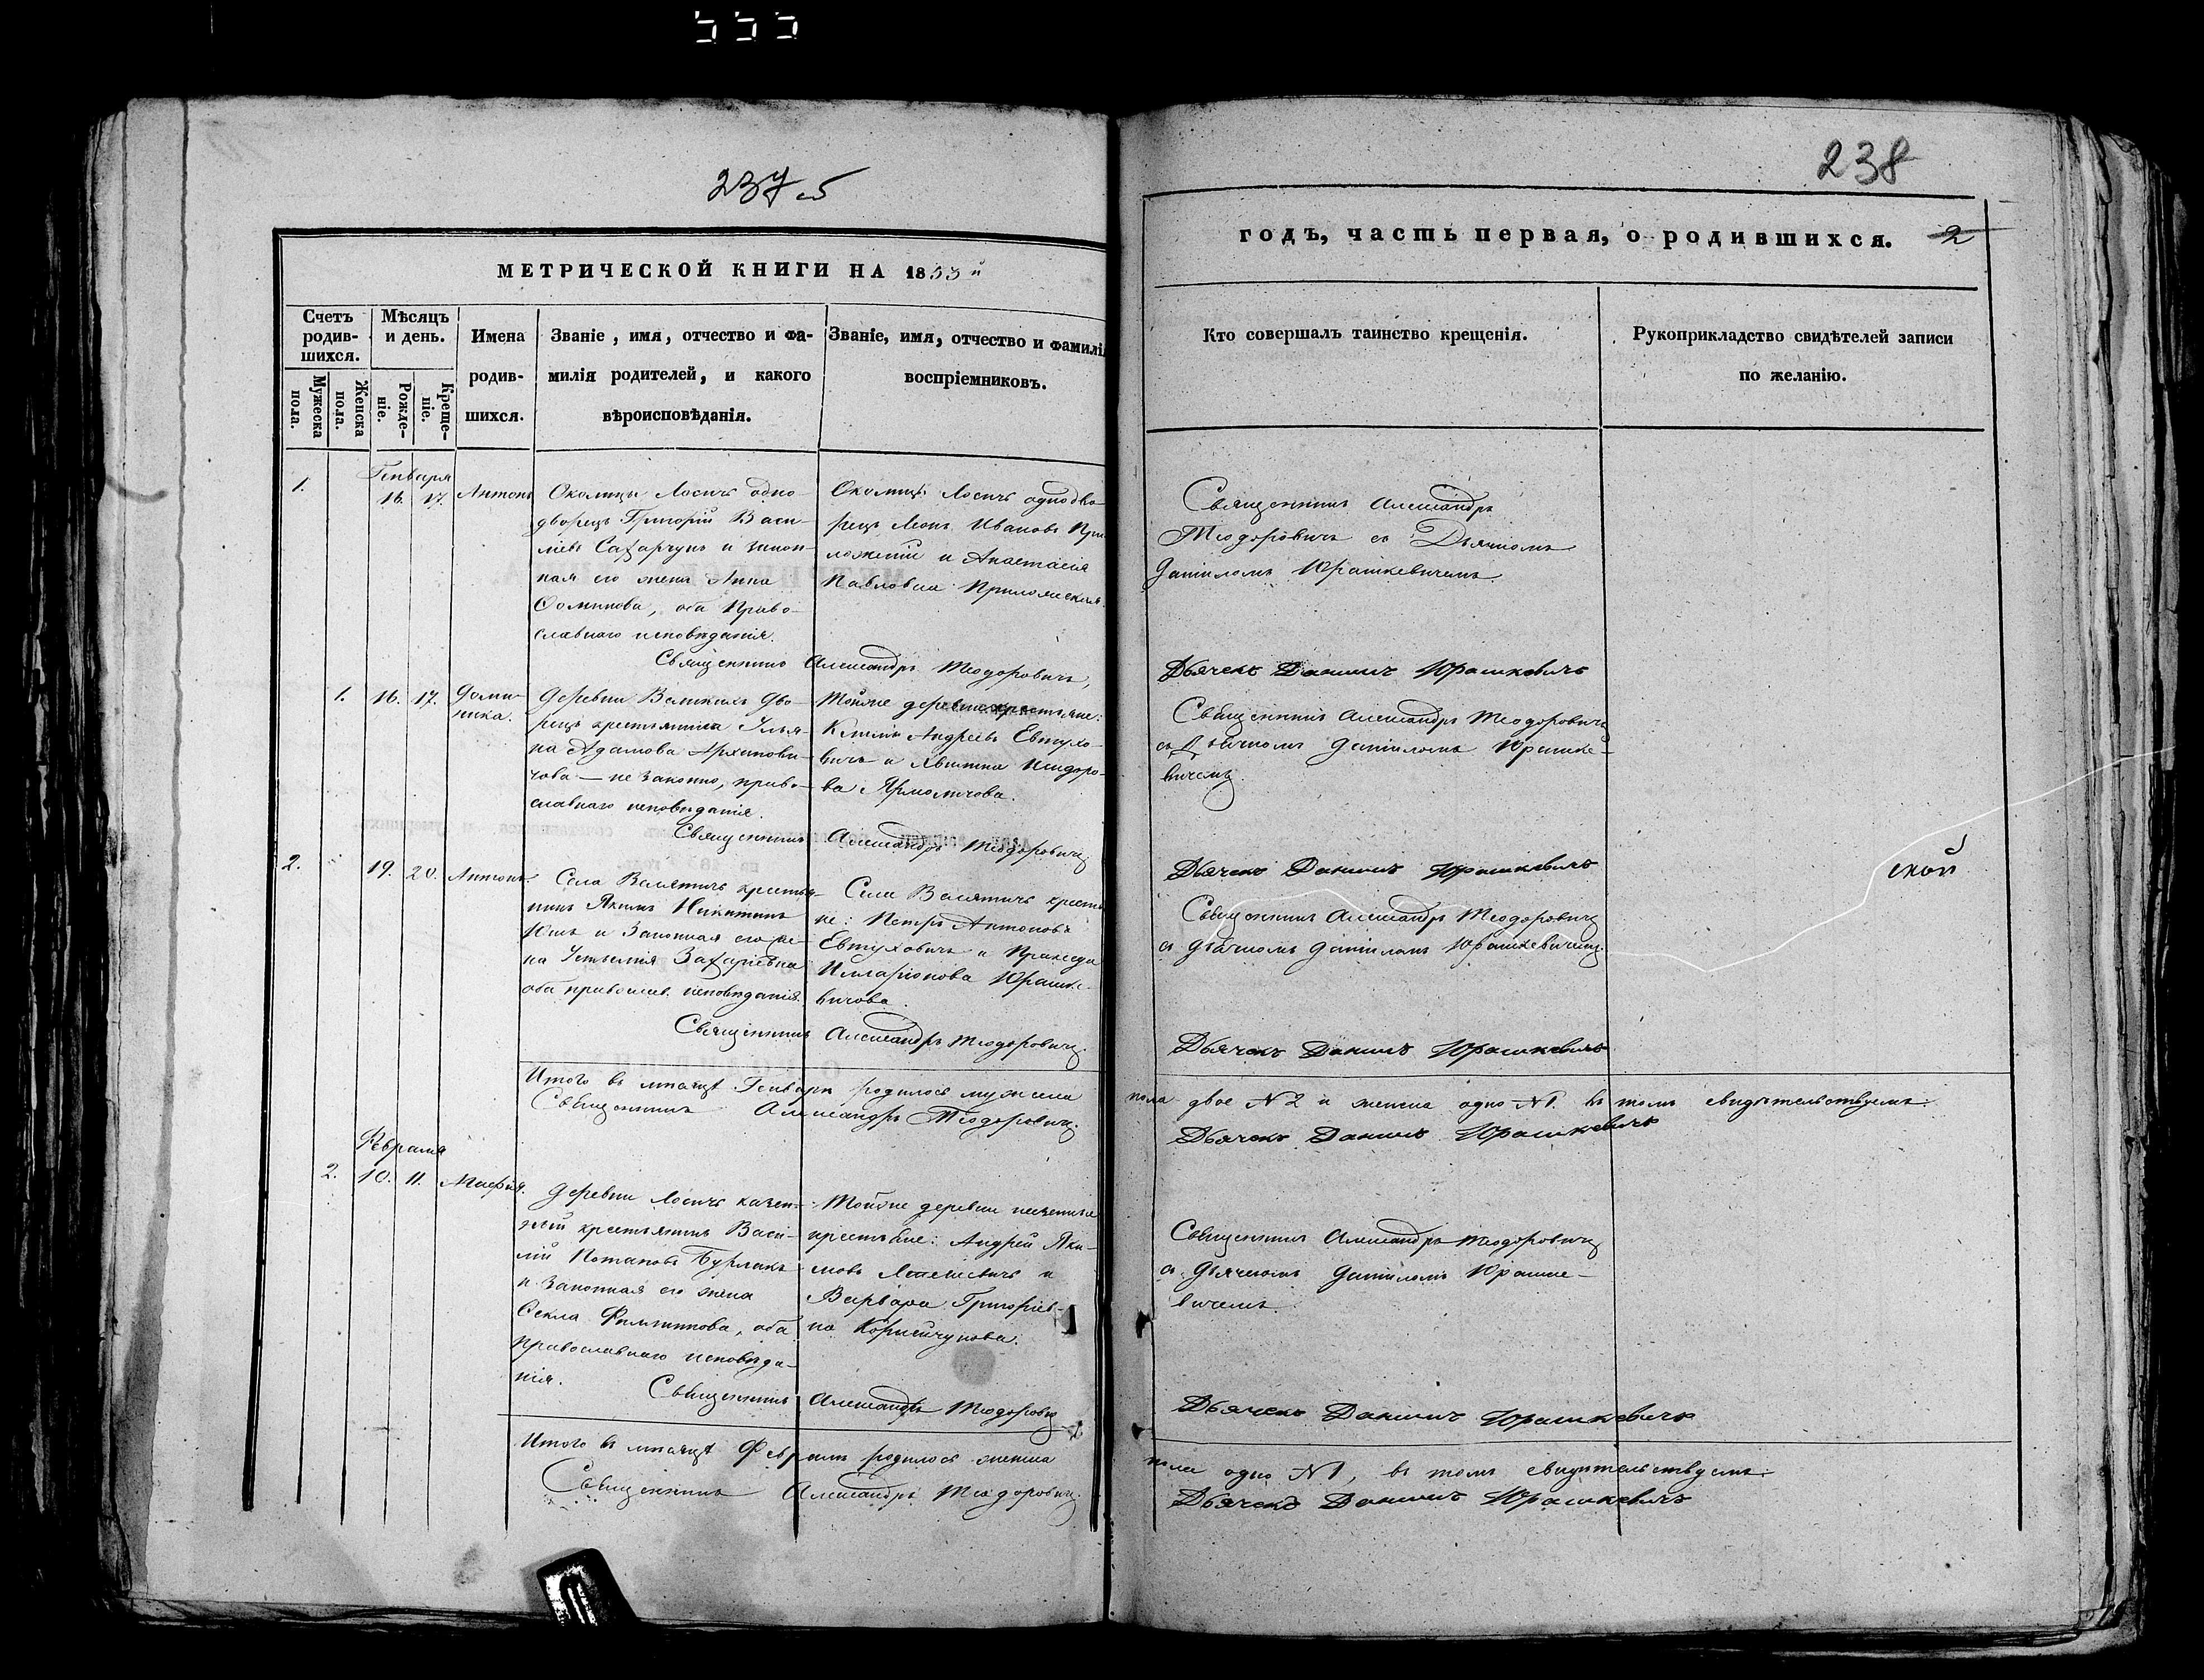 237 об
МЕТРИЧЕСКОЙ КНИГИ НА 1853 й
Счетъ родив-шихся.
Мужеска пола.
Женска пола.
Мѣсяцъ и день.
Рожде-ніе.
Креще-ніе.
Имена
родив-
шихся.
Званіе, имя, отчество и фа-
милія родителей, и какого
вѣроисповѣданія.
Званіе, имя, отчество и фамилія
воспріемниковъ.
Генваря
1. 16. 17. Антонъ
Околицы Лосичъ одно-
дворецъ Григорій Васи-
ліевъ Сахарчукъ и закон-
ная его жена Анна
Фомина, оба Право-
славнаго исповѣданія.
Околицы Лосичъ однодво-
рецъ Леонъ Ивановъ
и Анастасія
Павловна
Священникъ Александръ Теодоровичъ,
1. 16. 17. Доми-
ника.
Деревни дво-
рецъ крестьянка Улья-
на Адамова
чова — не законно, право-
славнаго исповѣданія.
Тойже деревни крестьяне:
Климъ Андреевъ Евтухо-
вичъ и Исидоро-
ва Ярмоличова.
Священникъ Александръ Теодоровичъ
2. 19. 20. Антонъ.
Села Велятичъ крестья-
нинъ Якимъ Никитинъ
и Законная его же-
на Захаріевна
оба православ. исповѣданія.
Села Велятичъ крестья
не: Петръ Антоновъ
Евтуховичъ и Пракседа
Илларіонова Юрашке-
вичова.
Священникъ Александръ Теодоровичъ.
Итого въ мѣсяцѣ Генварѣ родилось мужска
Священникъ Александръ Теодоровичъ.
Февраля
2. 10. 11.
Деревни Лосичъ казен-
ный крестьянинъ Васи-
лій Потаповъ Бурлакъ
и законная его жена
Фекла Филиппова, оба
православнаго исповѣда-
нія.
Тойже деревни казенные
крестьяне: Андрей Яки-
мовъ и
Варвара Григоріев-
на Корнейчукова.
Священникъ Александръ Теодоровичъ
Итого въ мѣсяцѣ Февралѣ родилось женска
Священникъ Александръ Теодоровичъ.
238
годъ, часть первая, о родившихся. 2
Кто совершалъ таинство крещенія.
Рукоприкладство свидѣтелей записи
по желанію.
Священникъ Александръ
Теодоровичъ съ Дьячкомъ
Даніиломъ Юрашкевичемъ.
Дьячекъ Даниилъ Юрашкевичъ
Священникъ Александръ Теодоровичъ
съ Дьячкомъ Даніиломъ Юрашке-
вичемъ.
Дьячекъ Даниилъ Юрашкевичъ
ской
Священникъ Александръ Теодоровичъ
съ дьячкомъ Даніиломъ Юрашкевичемъ.
Дьячекъ Даниилъ Юрашкевичъ
пола двое N 2 и женска одно N 1. въ томъ свидѣтельствуемъ:
Дьячекъ Даниилъ Юрашкевичъ
Священникъ Александръ Теодоровичъ
съ Дьячкомъ Даніиломъ Юрашке-
вичемъ.
Дьячекъ Даниилъ Юрашкевичъ
пола одно N 1, въ томъ свидѣтельствуемъ:
Дьячекъ Даниилъ Юрашкевичъ